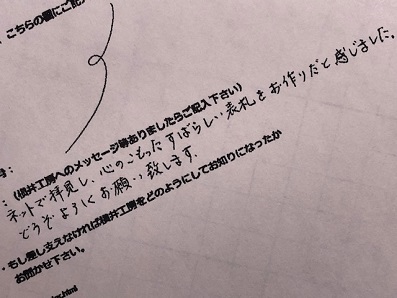 、こちらの欄にご記入
：（桜井工房へのメッセージ等ありましたらご記入下さい）
ネットで拝見し、心のこもったすばらしい表札をお作りだと感じました。
どうぞよろしくお願い致します。
・もし差し支えなければ桜井工房をどのようにしてお知りになったか
お聞かせ下さい。
.html